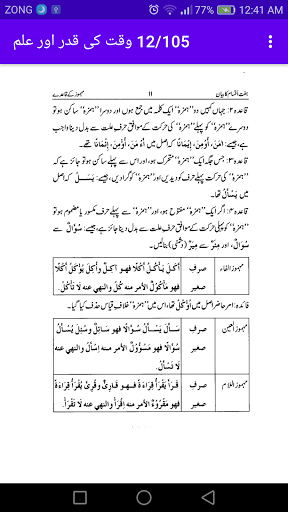 ZONG 77% 12:41 AM
12/105 وقت کی قدر اور علم
ہفت اقسام کا بیان ۱۱ مہموز کے قاعدے
قاعدہ ۲: جہاں کہیں دو "ہمزہ" ایک کلمہ میں جمع ہوں اور دوسرا "ہمزہ" ساکن ہو تو
دوسرے "ہمزہ" کو پہلے "ہمزہ" کی حرکت کے موافق حرف علت سے بدل دینا واجب
ہے، جیسے: اٰمَنَ، اُوْمِنَ، اِیْمَانًا کہ اصل میں أَءْ مَنَ، أُؤْمِنَ، إِئْمَانًا تھے۔
قاعدہ ۳: جس جگہ ایک "ہمزہ" متحرک ہو، اور اس سے پہلے ساکن ہو تو جائز ہے کہ
"ہمزہ" کی حرکت پہلے حرف کو دیدیں اور "ہمزہ" کو گرادیں، جیسے: یَسَلُ کہ اصل
میں یَسْأَلُ تھا۔
قاعدہ ۴: اگر ایک "ہمزہ" مفتوح ہو، اور "ہمزہ" سے پہلے حرف مکسور یا مضموم ہو تو
پہلی حرکت کے موافق حرف علت سے بدل دینا جائز ہے، جیسے: سُؤَالٌ سے
سُوَالٌ، اور مِئَرٌ سے مِیَرٌ (دشمنی) بنا لیں۔
مہموز الفاء صرفِ صغیر أَكَلَ يَأْكُلُ أَكْلًا فهو آكِلٌ وأُكِلَ يُؤْكَلُ أَكْلًا
فهو مَأْكُوْلٌ الأمر منه كُلْ والنهي عنه لَا تَأْكُلْ.
فائدہ: امر حاضر اصل میں اُؤْكُلْ تھا، اس میں "ہمزہ" خلاف قیاس حذف کیا گیا۔
مہموز العین صرفِ صغیر سَأَلَ يَسْأَلُ سُؤَالًا فهو سَائِلٌ وسُئِلَ يُسْأَلُ
سُؤَالًا فهو مَسْؤُوْلٌ الأمر منه اِسْأَلْ والنهي عنه
لَا تَسْأَلْ.
مہموز اللام صرفِ صغیر قَرَأَ يَقْرَأُ قِرَاءَةً فهو قَارِئٌ وقُرِئَ يُقْرَأُ قِرَاءَةً
فهو مَقْرُوْءٌ الأمر منه اِقْرَأْ والنهي عنه لَا تَقْرَأْ.